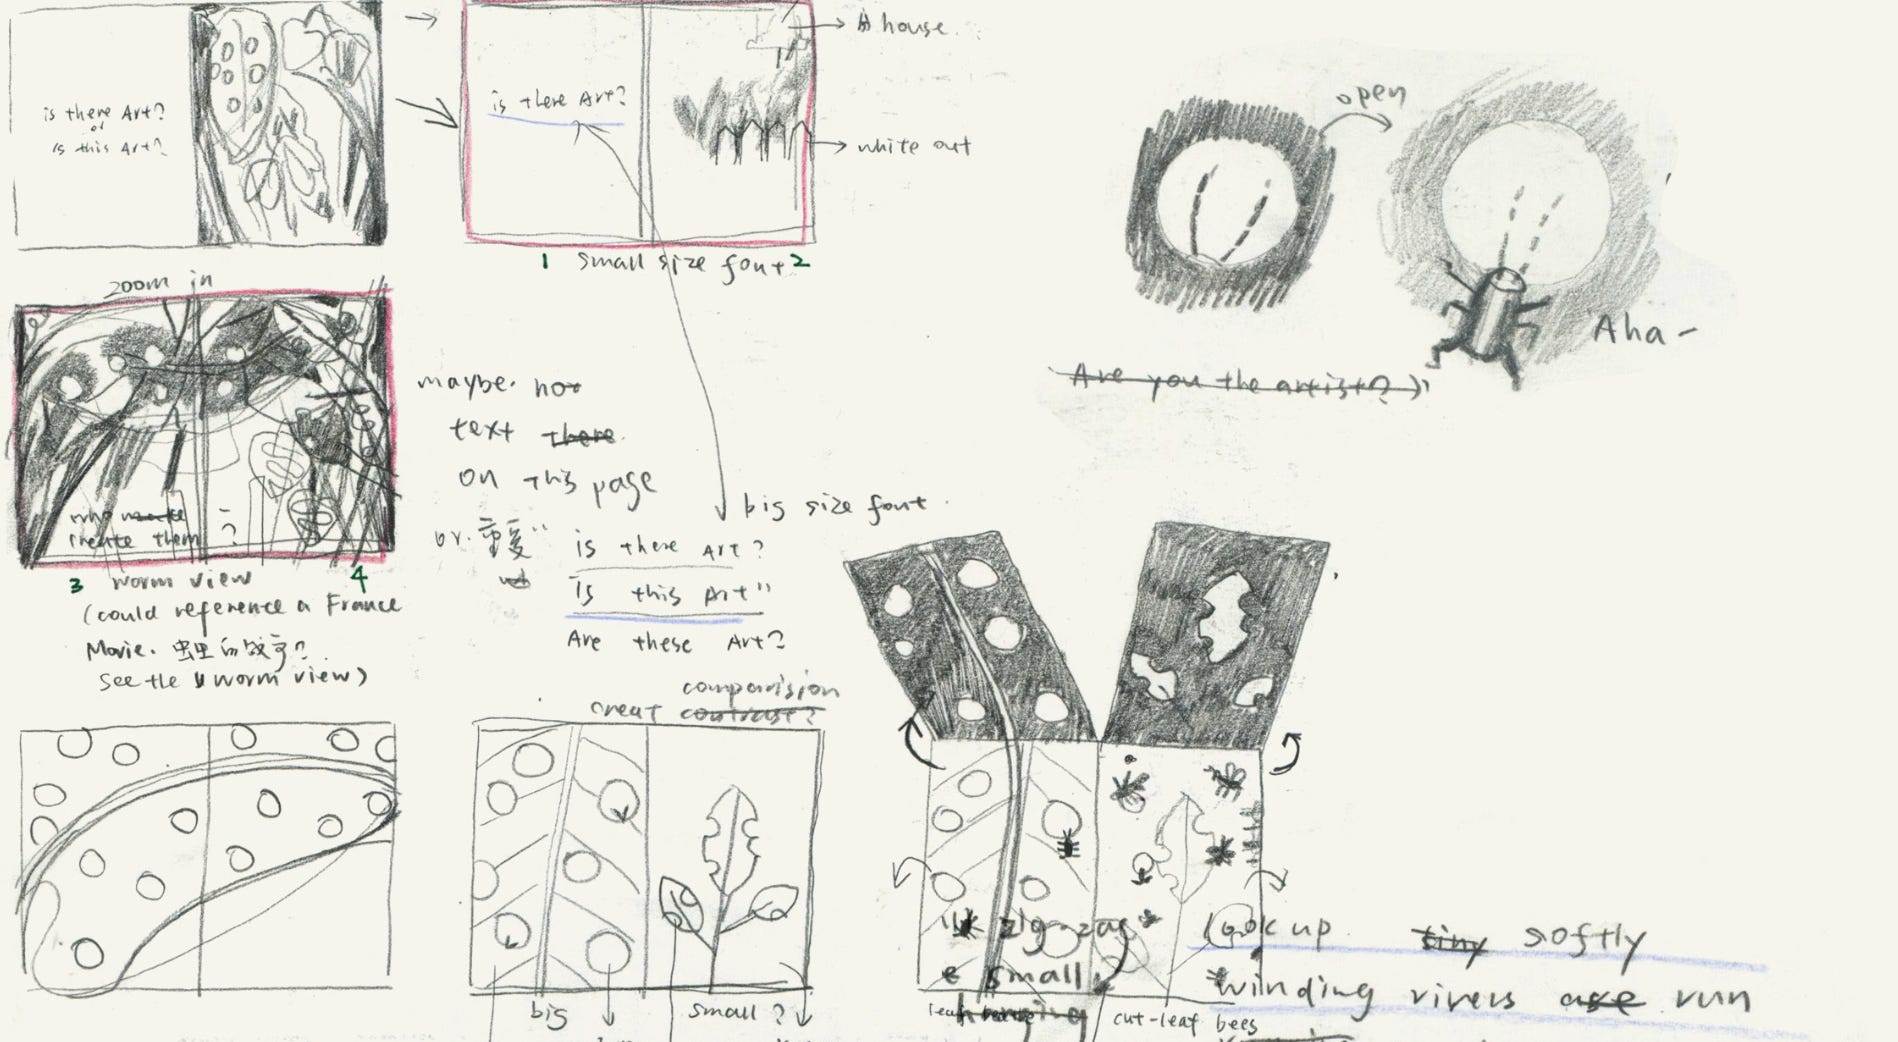 is there Art?
or
is this Art?
is there Art?
house
white out
1 small size font 2
open
Aha -
Are you the artist?
zoom in
who make
create them ?
3 worm view 4
(could reference a France
Movie.
see the worm view)
maybe. not
text there
on this page
or.
big size font
is there Art?
is this Art"
Are these Art?
comparision
creat contrast?
big
small ?
zig-zag
small
look up tiny softly
winding rivers are run
cut-leaf bees